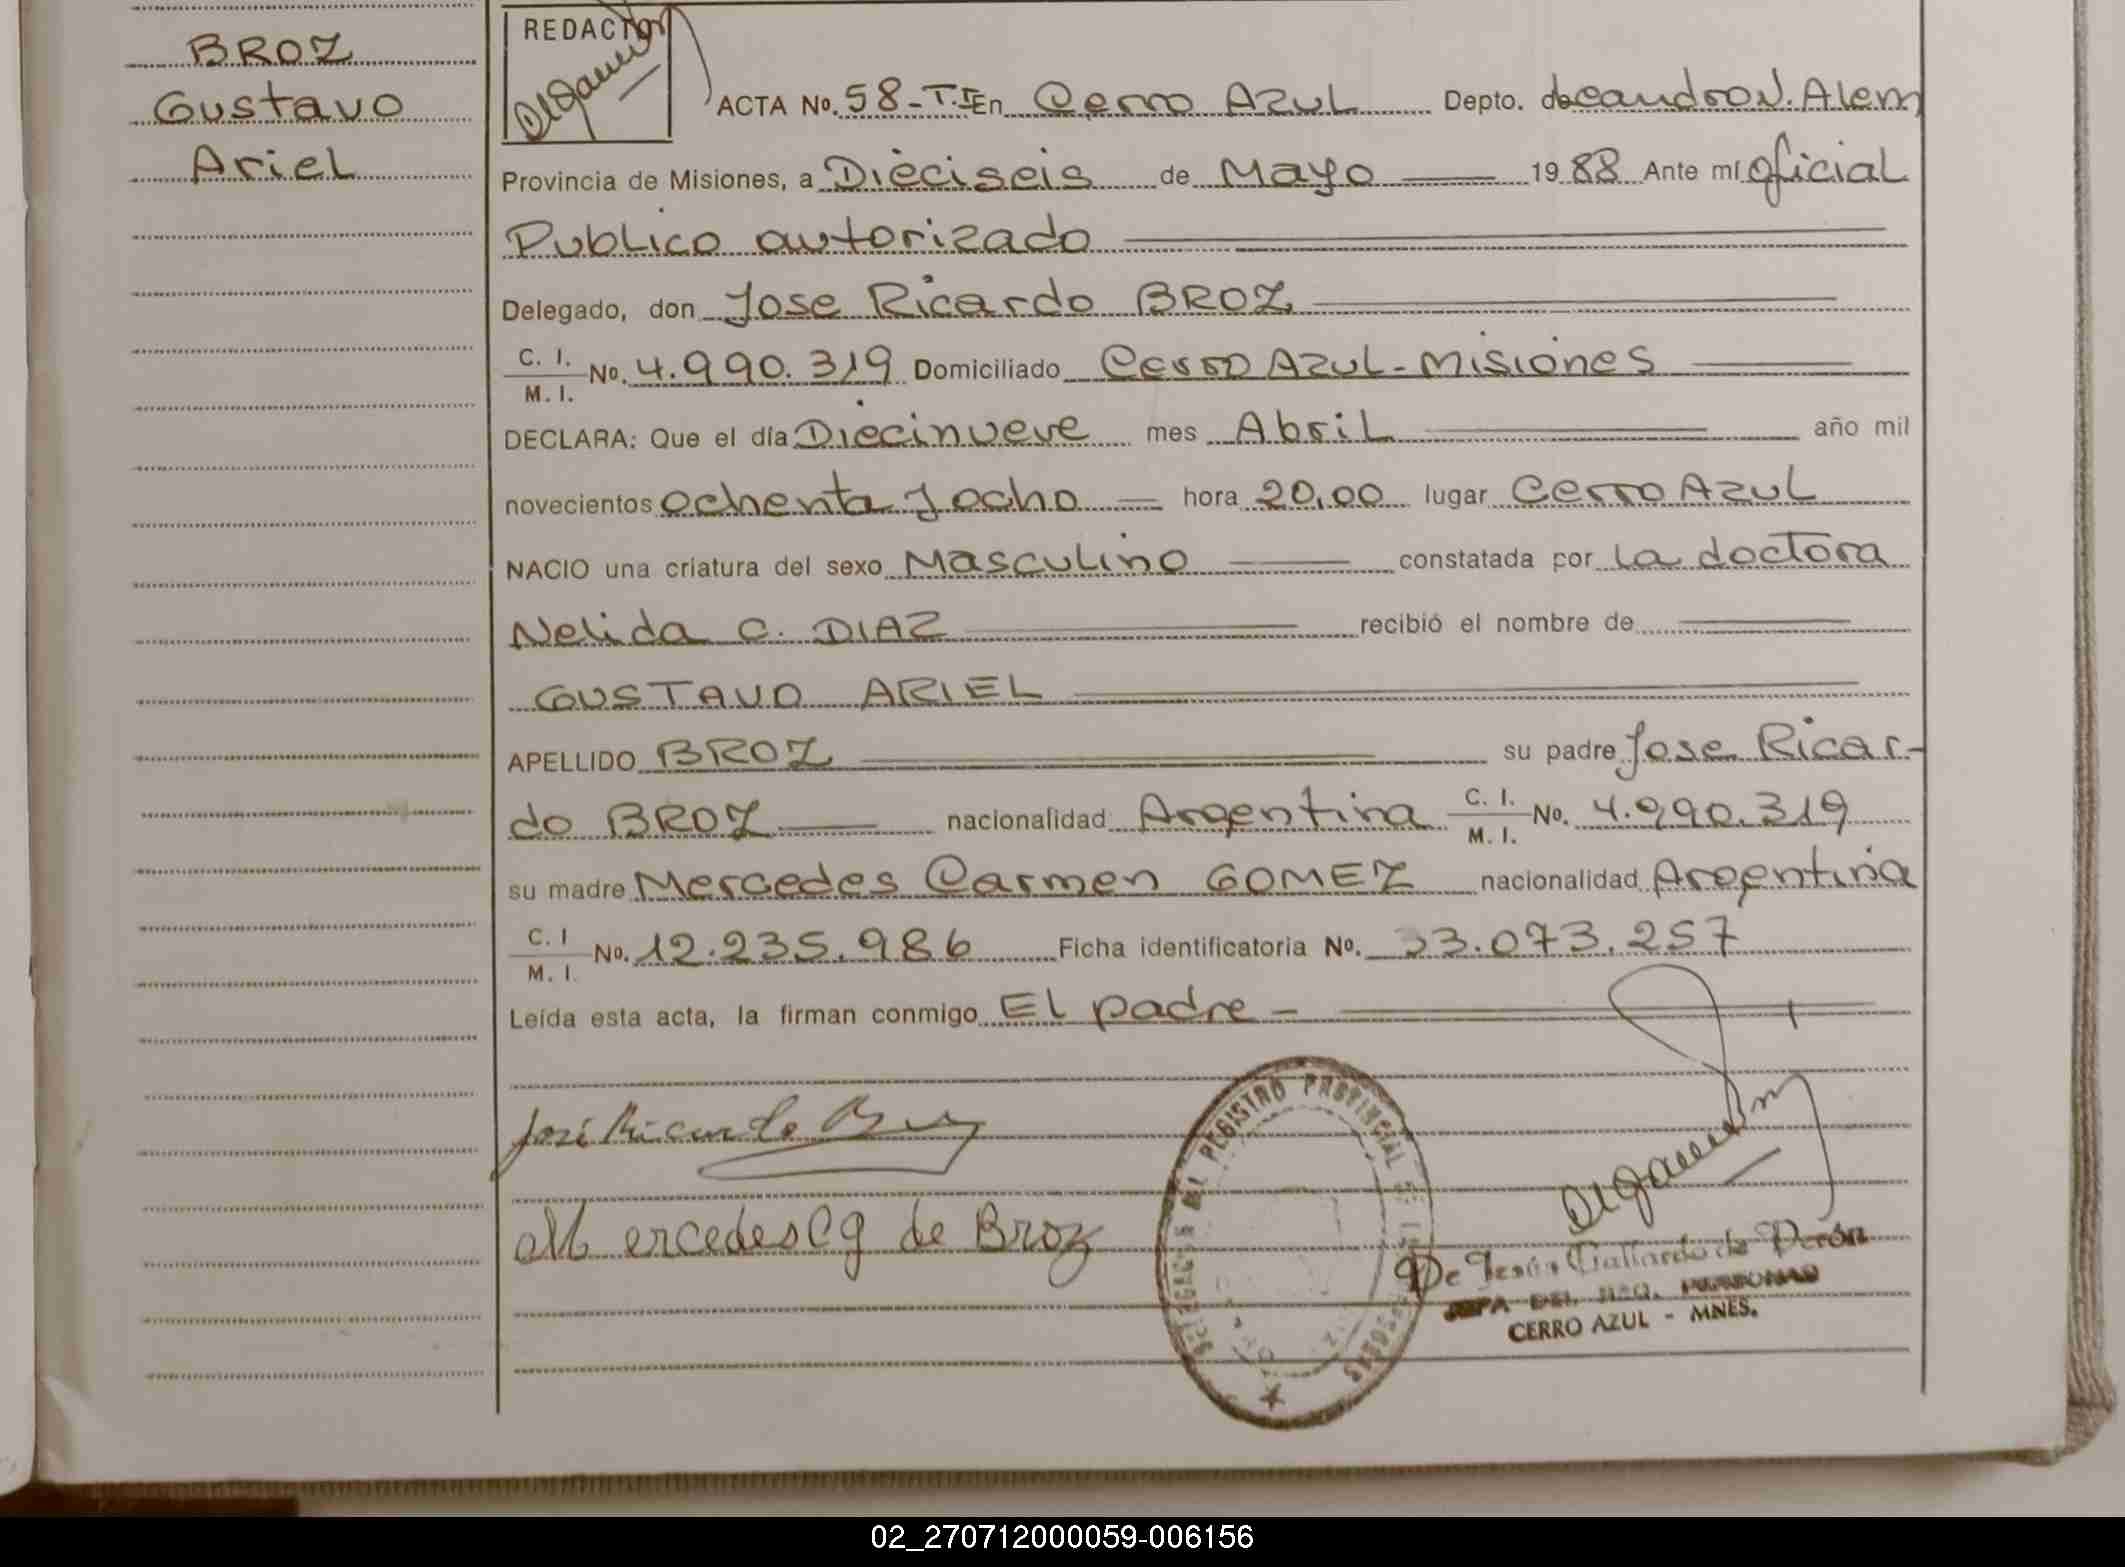 BROZ
Gustavo
Ariel
REDACTÓ
ACTA No. 58-T.I En Cerro Azul Depto. de Leandro N. Alem
Provincia de Misiones, a Dieciseis de Mayo 1988 Ante mí oficial
Publico autorizado
Delegado, don Jose Ricardo BROZ
C. I.
M. I.
No. 4.990.319 Domiciliado Cerro Azul - Misiones
DECLARA: Que el día Diecinueve mes Abril año mil
novecientos ochenta y ocho hora 20,00 lugar Cerro Azul
NACIO una criatura del sexo Masculino constatada por la doctora
Nelida C. DIAZ recibió el nombre de
GUSTAVO ARIEL
APELLIDO BROZ su padre Jose Ricar-
do BROZ nacionalidad Argentina C. I. M. I. No. 4.990.319
su madre Mercedes Carmen GOMEZ nacionalidad Argentina
C. I M. I. No. 12.235.986 Ficha identificatoria No. 33.073.257
Leída esta acta, la firman conmigo El padre -
José Ricardo Broz
Mercedes C g de Broz
REGISTRO PROVINCIAL
De Jesús Gallardo de Perón
JEFA DEL REG. PERSONAS
CERRO AZUL - MNES.
02_270712000059-006156